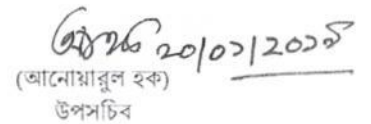 ২০/০১/২০১৯
(আনোয়ারুল হক)
উপসচিব